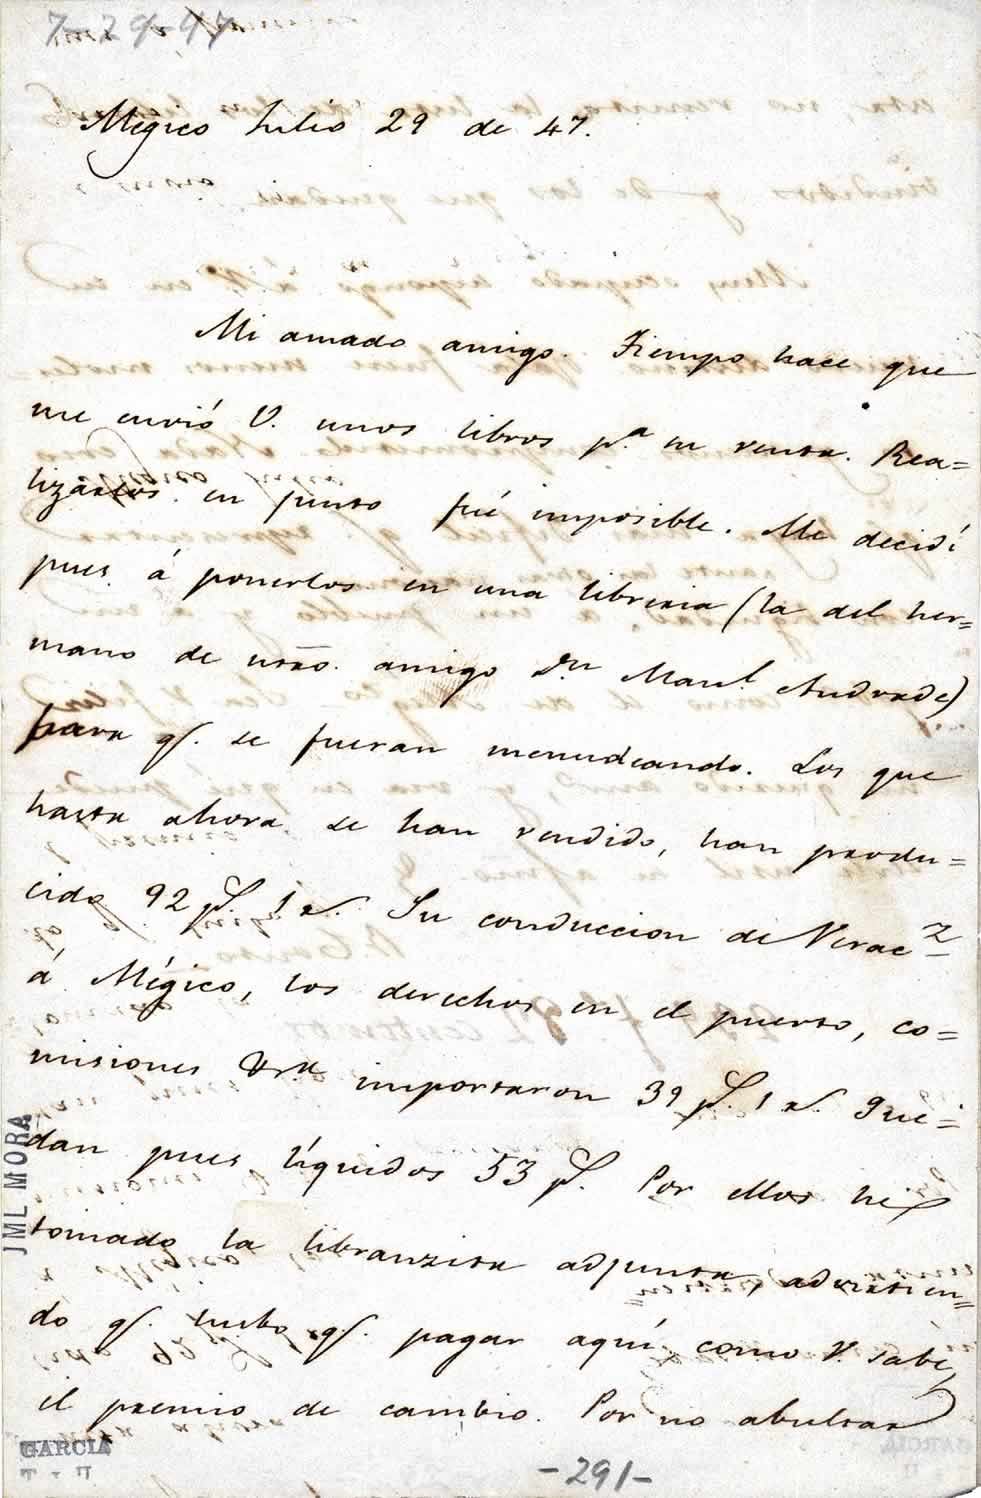 7-29-47
Mégico Julio 29 de 47.
Mi amado amigo. Tiempo hace que
me envió V. unos libros p.a su venta. Rea=
lizarlos en junto fué imposible. Me decidí
pues á ponerlos en una libreria (la del her=
mano de ntro. amigo Dn Manl. Andrade)
para q. se fueran menudeando. Los que
hasta ahora se han vendido, han produ=
cido 92 p. 1 r. Su conduccion de Veracz
á Mégico, los derechos en el puerto, co=
misiones &ra importaron 39 p. 1 r. Que=
dan pues líquidos 53 p. Por ellos he
tomado la libranzita adjunta, advirtien=
do q. hubo q. pagar aquí como V. sabe,
el premio de cambio. Por no abultar
JML MORA
GARCIA
-291-